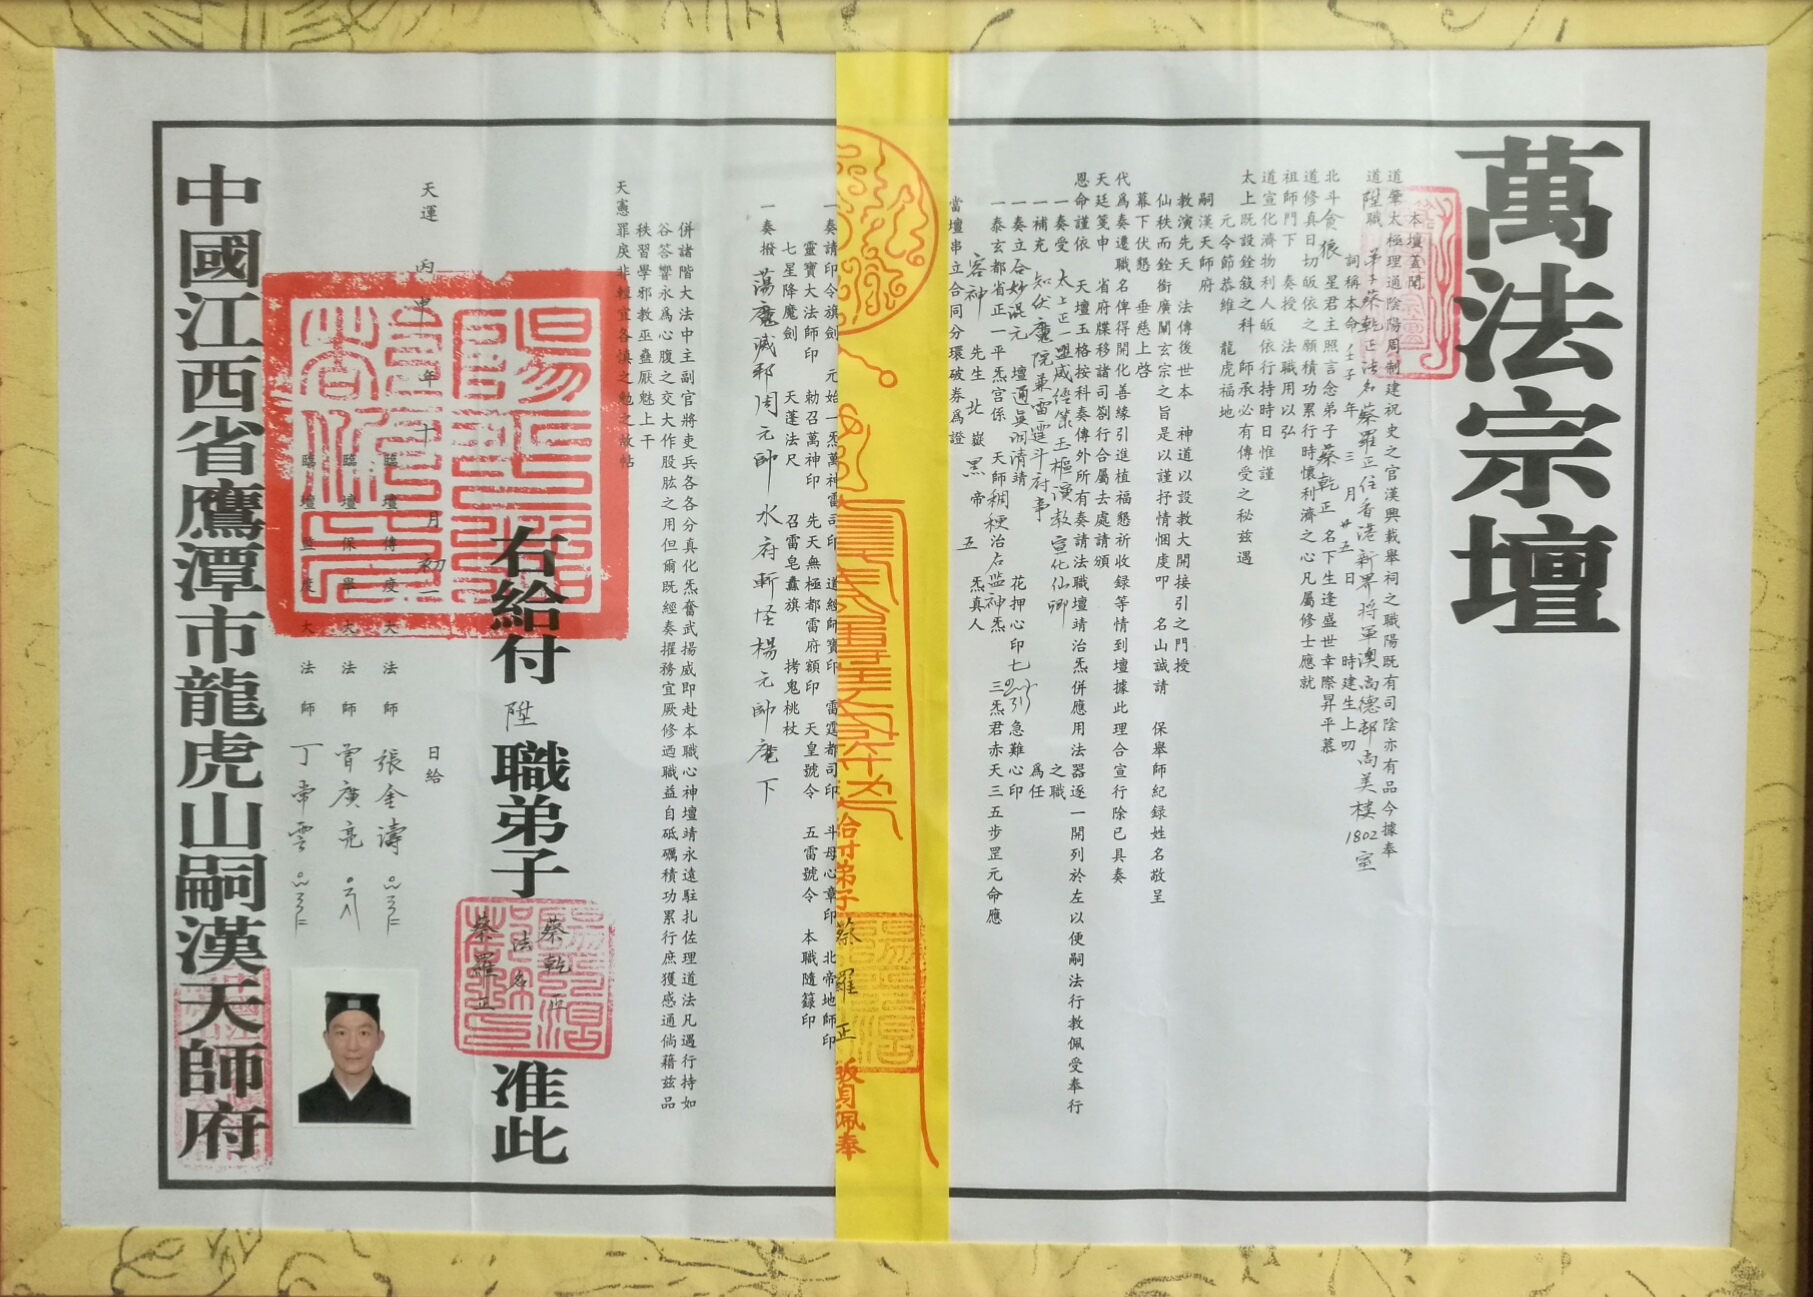 萬法宗壇
本壇蓋聞
道肇太極理通陰陽周制建祝史之官漢興載舉祠之職陽既有司陰亦有品今據奉
道陞職 弟子蔡乾正法名蔡羅正住香港新界將軍澳尚德邨尚美樓1802室
詞稱本命壬子年三月廿五日 時建生上叨
北斗貪狼星君主照言念弟子蔡乾正名下生逢盛世幸際昇平慕
道修真日切皈依之願積功累行時懷利濟之心凡屬修士應就
祖師門下 奏授 法職用以弘
道宣化濟物利人皈依行持時日惟謹
太上既設銓敘之科 師承必有傳受之秘茲遇
元令節恭維 龍虎福地
嗣漢天師府
教演先天 法傳後世本 神道以設教大開接引之門授
仙秩而銓銜廣闡玄宗之旨是以謹抒情悃虔叩 名山誠請 保舉師紀錄姓名敬呈
幕下伏懇 垂慈上啓
代爲奏遷職名俾得開化善緣引進植福懇祈收録等情到壇據此理合宣行除已具奏
天廷箋申 省府牒移諸司劄行合屬去處請頒
恩命謹依 天壇玉格按科奏傳外所有奏請法職壇靖治炁併應用法器逐一開列於左以便嗣法行教佩受奉行
一奏受 太上正一盟威經籙玉樞演教宣化仙卿 之職
一補充 知伏魔院兼雷霆斗府事 爲任
一奏立合妙混元 壇通真洞清靖 花押心印七 急難心印
一泰玄都省正一平炁宫係 天師稠稉治右監神炁 三炁君赤天三五步罡元命應
容神 先生 北 嶽 黑 帝 五 炁真人
當壇串立合同分環破券爲證
給付弟子 蔡羅正 賫佩奉
一奏請印令旗劍 元始一炁萬神雷司印 道經師寶印 雷霆都司印 斗母心章印 北帝地師印
靈寶大法師印 勅召萬神印 先天無極都雷府額印 天皇號令 五雷號令 本職隨籙印
七星降魔劍 天蓬法尺 召雷皂纛旗 拷鬼桃杖
一奏撥 蕩魔滅邪周元帥 水府斬怪楊元帥麾下
併諸階大法中主副官將吏兵各各分真化炁奮武揚威即赴本職心神壇靖永遠駐扎佐理道法凡遇行持如
谷答響永爲心腹之交大作股肱之用但爾既經奏擢務宜厥修迺職益自砥礪積功累行庶獲感通倘藉茲品
秩習學邪教巫蠱厭魅上干
天憲罪戾非輕宜各慎之勉之故帖
右給付 陞 職弟子 蔡乾正 法名 蔡羅正 准此
天運 丙申 年 十 月 初一 日給
臨壇傳度大法師 張金濤
臨壇保舉大法師 曾廣亮
臨壇監度大法師 丁常雲
中國江西省鷹潭市龍虎山嗣漢天師府